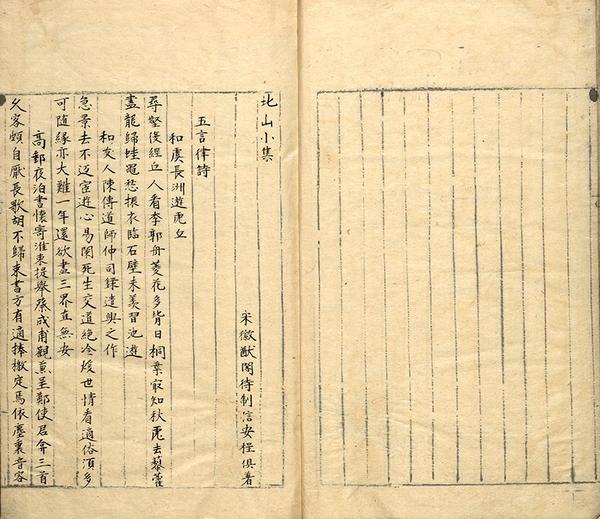 北山小集
宋徽猷閣待制信安程俱著
五言律詩
和虞長洲遊虎丘
尋壑復經丘人看李郭舟菱花多背日桐葉寂知秋虎去藜藿
盡龍歸蛙黽愁振衣臨石壁未羨習池遊
和友人陳傳道師仲司錄遣興之作
急景去不返宦遊心易闌死生交道絕冷煖世情看適俗須多
可隨緣亦大難一年還欲盡三界直無安
高郵夜泊書懷寄淮東提舉蔡成甫觀兼呈鄭使君弇三首
久客頗自厭長歌胡不歸束書方有適捧檄定焉依塵裏音容